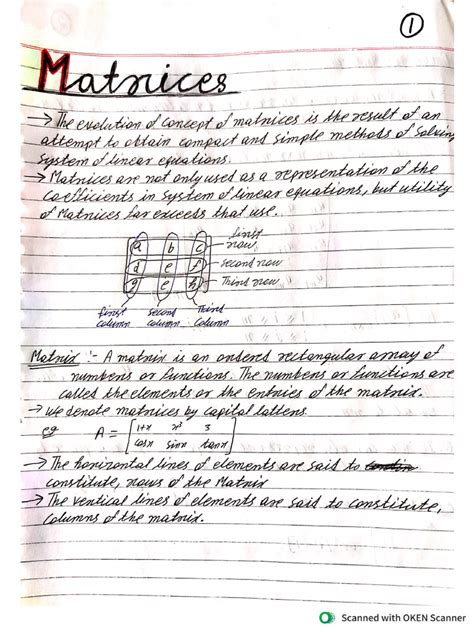 ①
Matrices
→ The evolution of concept of matrices is the result of an
attempt to obtain compact and simple methods of Solving
System of linear equations.
→ Matrices are not only used as a representation of the
Coefficients in System of linear equations, but utility
of Matrices far exceeds that use.
a b c first row
d e f second row
g e h Third row
first column second column Third Column
Matrix :- A matrix is an ordered rectangular array of
numbers or functions. The numbers or functions are
called the elements or the entries of the matrix.
→ We denote matrices by capital letters.
eg A = [1+x x³ 3
cosx sinx tanx]
→ The horizontal lines of elements are said to
constitute, rows of the Matrix
→ The vertical lines of elements are said to constitute,
Columns of the matrix.
Scanned with OKEN Scanner